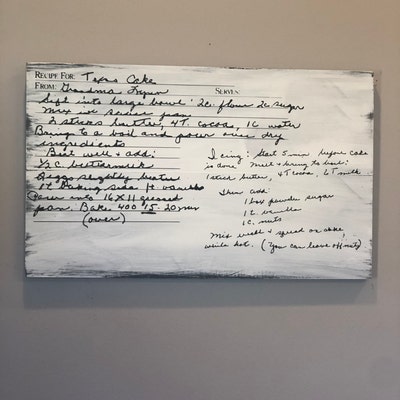 RECIPE FOR: Texas Cake
FROM: Grandma SERVES:
Sift into large bowl 2c. flour 2c sugar
Mix in sauce pan
2 sticks butter, 4T. cocoa, 1c water
Bring to a boil and pour over dry
ingredients
Beat well & add:
1/2 c buttermilk
2 eggs slightly beaten
1t Baking soda 1t. vanilla
Pour into 16X11 greased
pan. Bake 400 15-20 min
(over)
Icing: Start 5 min before cake
is done. Melt & bring to boil:
1 stick butter, 4T cocoa, 6T milk
Then add:
1 box powder sugar
1t vanilla
1c. nuts
Mix well & spread on cake
while hot. (You can leave off nuts)